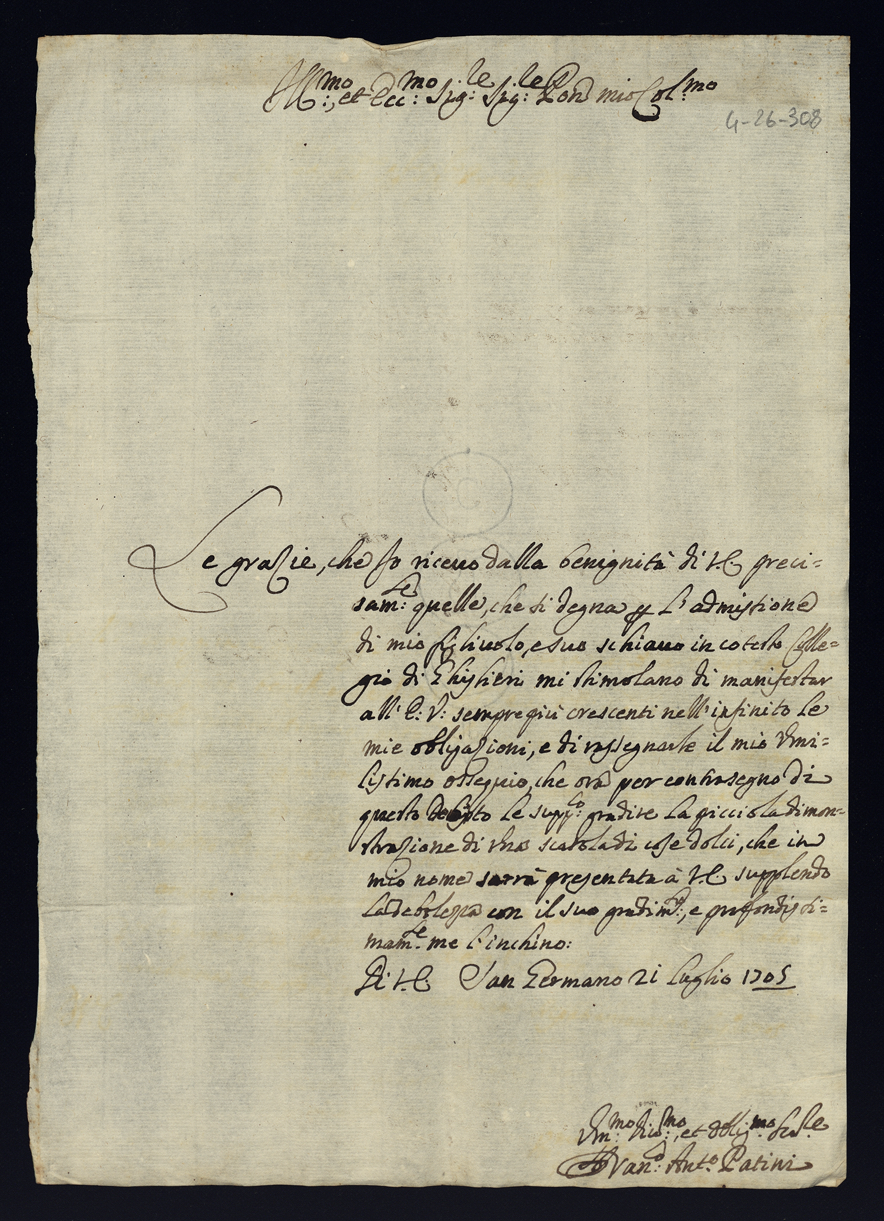 Ill:mo, et Ecc:mo Sig:le Sig:le Pron mio Col:mo
4-26-308
Le grazie, che Io riceuo dalla benignità di V.E. preci=
sam:te quelle, che si degna per l'admissione
di mio figliuolo, e suo schiauo in cotesto Colle=
gio di Ghislieri mi stimolano di manifestar
all' E: V: sempre più crescenti nell'infinito le
mie obligazioni, e di rassegnarle il mio Vmi=
lissimo ossequio, che ora per contrasegno di
questo debito le supp:co gradire la picciola dimon=
strazione di vna scatola di cose dolci, che in
mio nome sarrà presentata à V.E. supplendo
la debolezza con il suo gradim:to, e profondissi=
mam:te me l'inchino:
Di V.E. San Germano 21 luglio 1705
Vm:mo Diu:mo, et Oblig:mo Se:re
Fran:o Ant:o Patini